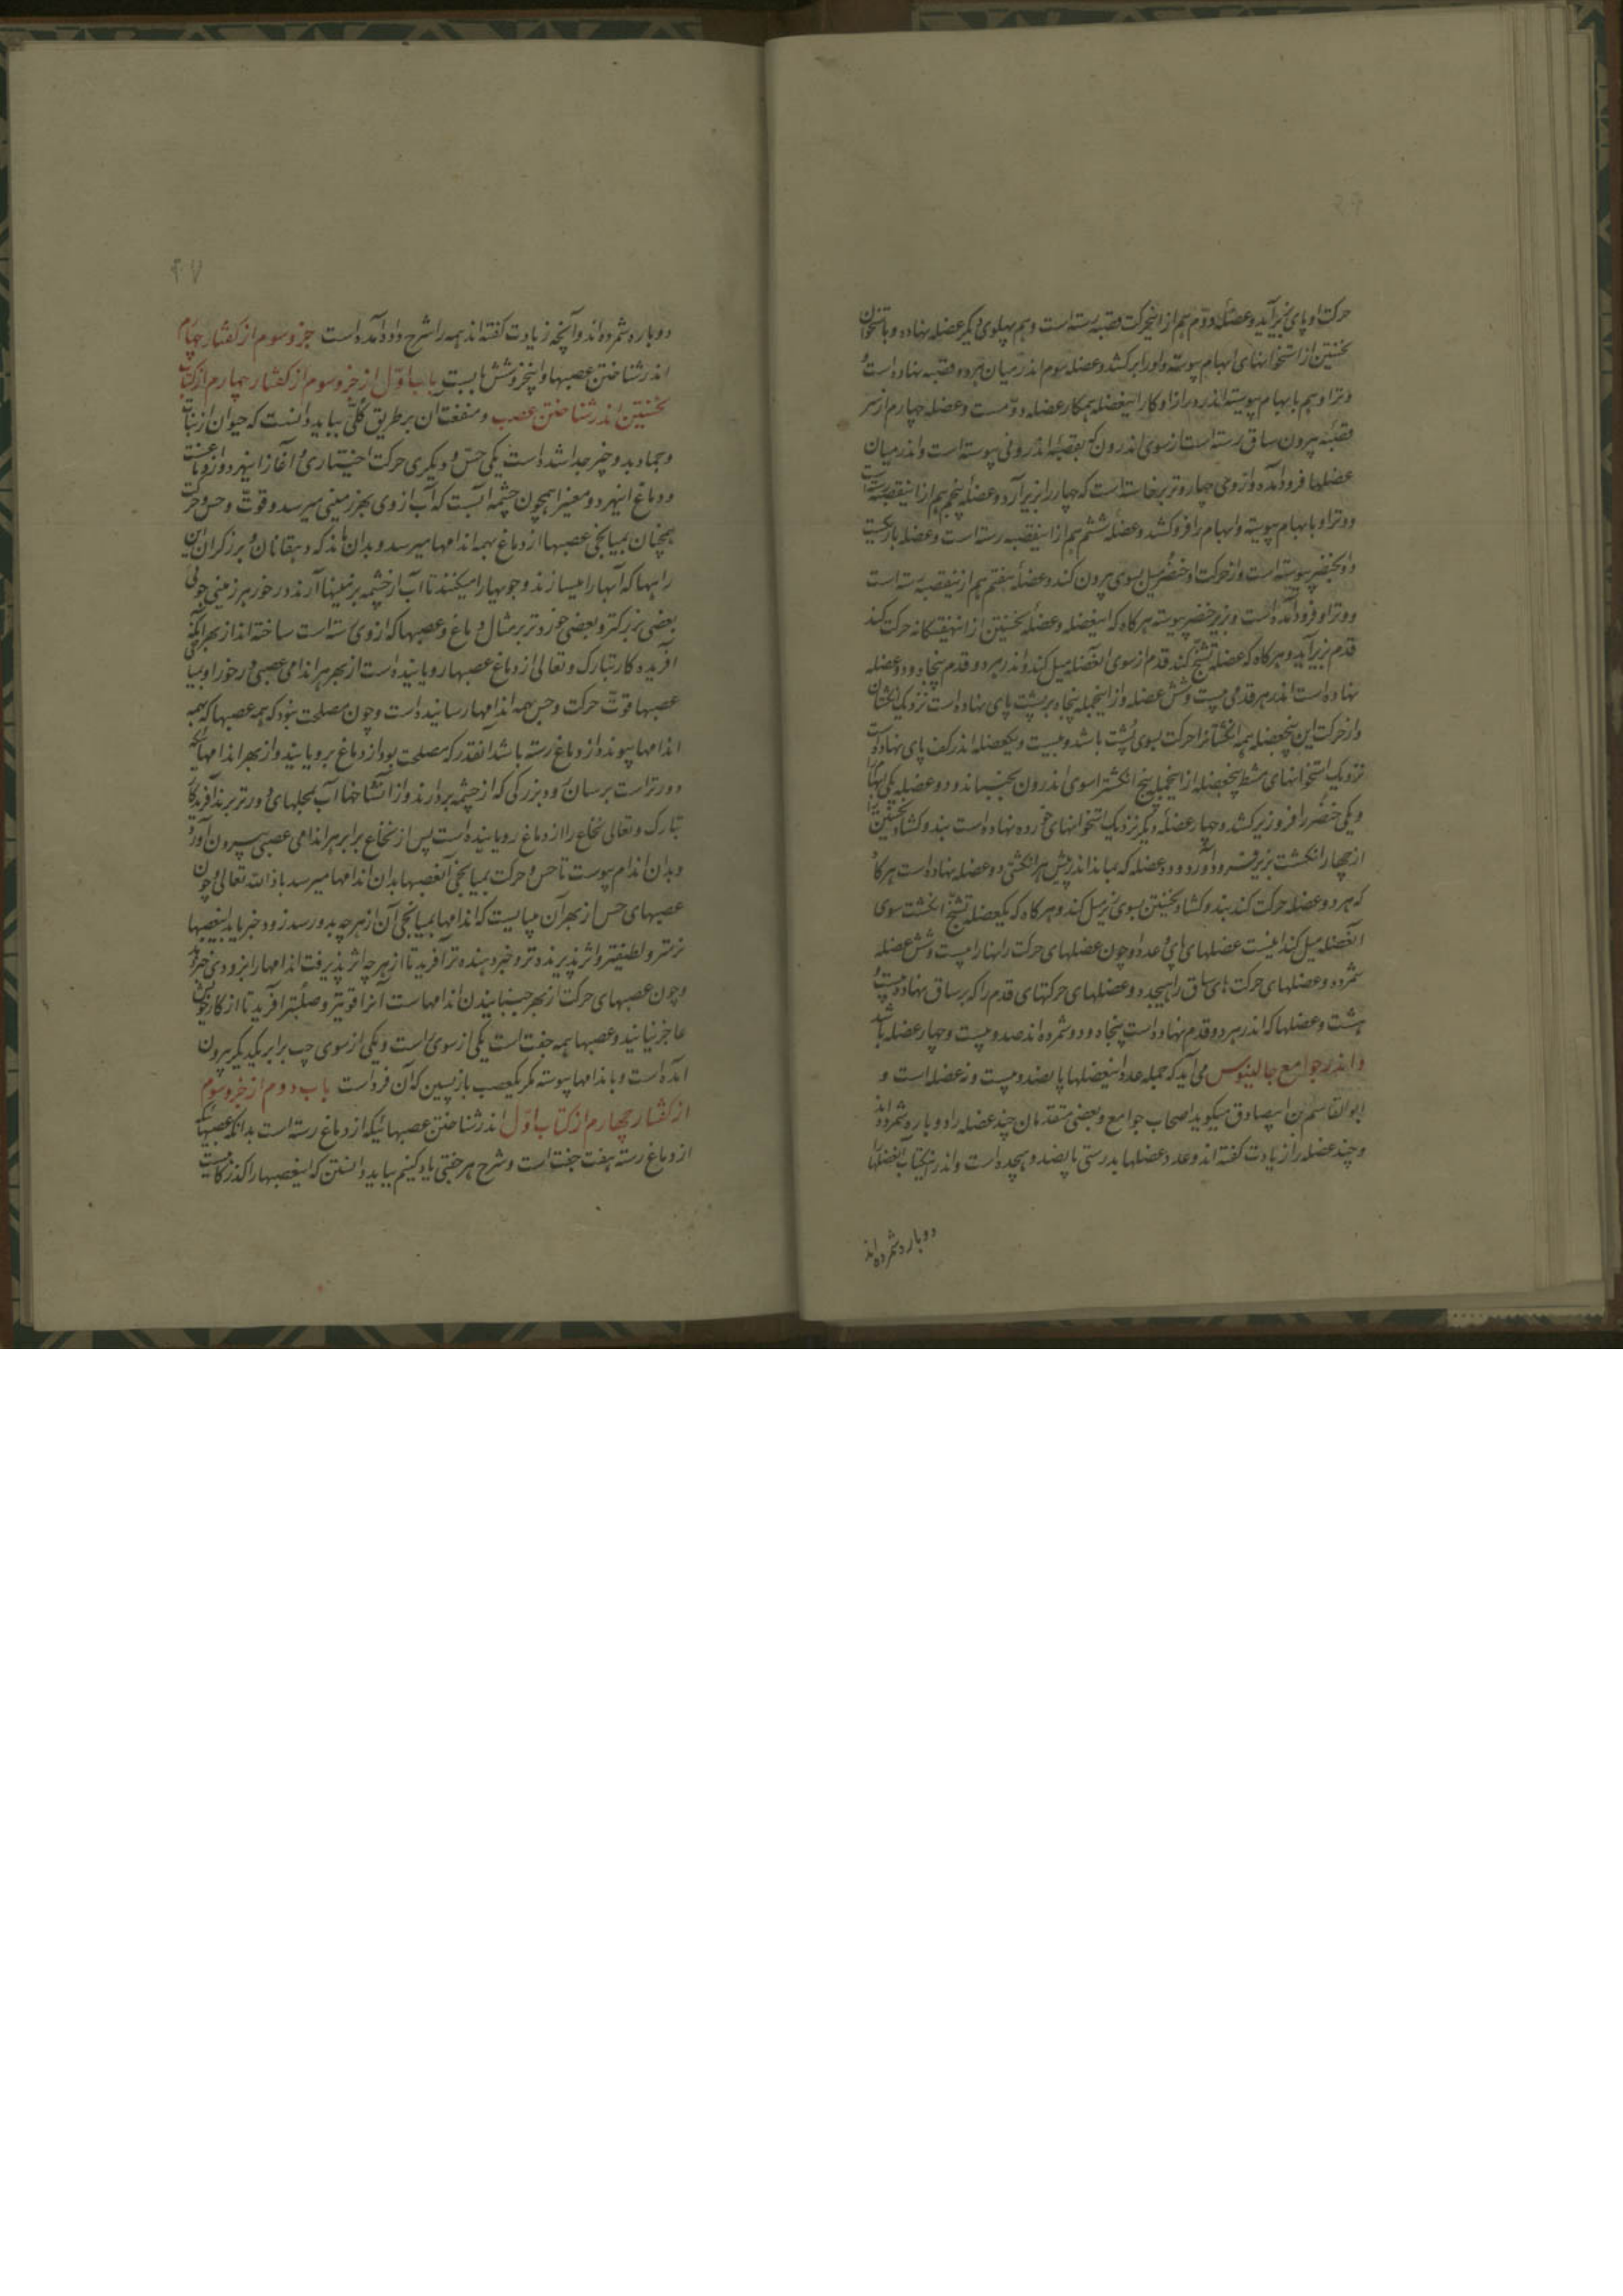 حرکت او پای بزیر آید و عضلهٔ دوم هم از اینحرکت قصبه رسته است و هم پهلوی دیکر عضله نهاده و باستخوان
نخستین از استخوانهای ابهام پیوسته و او را برکشد و عضله سوم اندر میان هر دو قصبه نهاده است و
وتر او هم با بهام پیوسته اندر درازا و کار اینعضله همکار عضله دوم است و عضله چهارم از سر
قصبهٔ بیرون ساق رسته است از سوی اندرون که بقصبهٔ اندرونی پیوسته است و اندر میان
عضلها فرود آمده و از وی چهار وتر برخاسته است که چهار را بزیر آرد و عضله پنجم هم از اینقصبه رسته است
و وتر او با بهام پیوسته و ابهام را فرو کشد و عضلهٔ ششم هم از اینقصبه رسته است و عضله باریکست
و او بخنصر پیوسته است و از حرکت او خنصر میل بسوی بیرون کند و عضلهٔ هفتم هم از اینقصبه رسته است
و وتر او فرود آمده است و بزیر خنصر پیوسته هر کاه که اینعضله و عضلهٔ نخستین از اینهفتکانه حرکت کند
قدم بزیر آید و هر کاه که عضله تشنج کند قدم از سوی آنعضله میل کند و اندر هر دو قدم پنجاه و دو عضله
نهاده است اندر هر قدمی بیست و شش عضله و از اینجمله پنجاه بر پشت پای نهاده است نزدیک انکشتان
و از حرکت این پنجعضله همه انکشتانرا حرکت بسوی پشت باشد و بیست و یکعضله اندر کف پای نهاده است
نزدیک استخوانهای مشط پنجعضله از اینجمله پنج انکشترا سوی اندرون بجنباند و دو عضله یکی ابهام را
و یکی خنصر را فرو زیر کشد و چهار عضلهٔ دیکر نزدیک استخوانهای خورده نهاده است بند و کشاد نخستین را
از چهار انکشت بزیر فرود آورد و ده عضله که بماند اندر پیش هر انکشتی دو عضله نهاده است هر کاه
که هر دو عضله حرکت کند بند و کشاد نخستین بسوی زیر میل کند و هر کاه که یکعضله تشنج انکشت سوی
آنعضله میل کند اینست عضلهای پای و عدد او چون عضلهای حرکت رانها را بیست و شش عضله
شمرده و عضلهای حرکت های ساق را هیجده و عضلهای حرکتهای قدم را که بر ساق نهاده بیست و
هشت و عضلها که اندر هر دو قدم نهاده است پنجاه و دو شمرده اند صد و بیست و چهار عضله باشد
و اندر جوامع جالینوس می آید که جمله عدد اینعضلها پانصد و بیست و نه عضله است و
ابو القاسم بن ابیصادق میکوید اصحاب جوامع و بعضی متقدمان چند عضله را دو بار شمرده اند
و چند عضله را زیادت کفته اند و عدد عضلها بدرستی پانصد و هیجده است و اندر اینکتاب آنعضلها را
دوباره شمرده اند
۴۷
دوباره شمرده اند و آنچه زیادت کفته اند همه را شرح داده آمده است جزو سوم از کفتار چهارم
اندر شناختن عصبها و اینجزو شش بابست باب اول از جزو سوم از کفتار چهارم از کتاب
نخستین اندر شناختن عصب و منفعت آن بر طریق کلی بباید دانست که حیوان از نبات
و جماد بدو چیز جدا شده است یکی حس و دیکری حرکت اختیاری و آغاز اینهر دو از دماغست
و دماغ اینهر دو معنیرا همچون چشمه آبست که آب از وی بهر زمینی میرسد و قوت و حس و حرکت
همچنان بمیانجی عصبها از دماغ بهمه اندامها میرسد و بدان ماند که دهقانان و برزکران این
راهها که آبها را میسازند و جویها را میکنند تا آب از چشمه بزمینها آرند در خور هر زمینی جوئی
بعضی بزرکتر و بعضی خوردتر بر مثال دماغ و عصبها که از وی رسته است ساخته اند از بهر آنکه
آفریدکار تبارک و تعالی از دماغ عصبها رویانیده است از بهر هر اندامی عصبی در خور او و بمیانجی
عصبها قوت حرکت و حس همه اندامها رسانیده است و چون مصلحت نبود که همه عصبها که بهمه
اندامها پیوندد از دماغ رسته باشد آنقدر که مصلحت بود از دماغ برویانید و از بهر اندامها که
دورتر است برسان رود بزرکی که از چشمه بردارند و از آنشاخها آب بمحلهای دورتر برند آفریدکار
تبارک و تعالی نخاع را از دماغ رویانیده است پس از نخاع برابر هر اندامی عصبی بیرون آورد
و بدان اندام پیوست تا حس و حرکت بمیانجی آنعصبها بدان اندامها میرسد باذن الله تعالی و چون
عصبهای حس از بهر آن میبایست که اندامها بمیانجی آن از هر چه بدو رسد زود خبر یابد اینعصبها
نرمتر و لطیفتر و اثر پذیرنده تر و خبر دهنده تر آفرید تا از هر چه اثر پذیرفت اندامها را بزودی خبر دهد
و چون عصبهای حرکت از بهر جنبانیدن اندامهاست آنرا قویتر و صلبتر آفرید تا از کار خویش
عاجز نیاید و عصبها همه جفت است یکی از سوی راست و یکی از سوی چپ برابر یکدیکر بیرون
آمده است و باندامها پیوسته مکر یکعصب بازپسین که آن فرد است باب دوم از جزو سوم
از کفتار چهارم از کتاب اول اندر شناختن عصبهائیکه از دماغ رسته است بدانکه عصبهائیکه
از دماغ رسته هفت جفت است و شرح هر جفتی یاد کنیم بباید دانستن که اینعصبها را کذر کاهیست